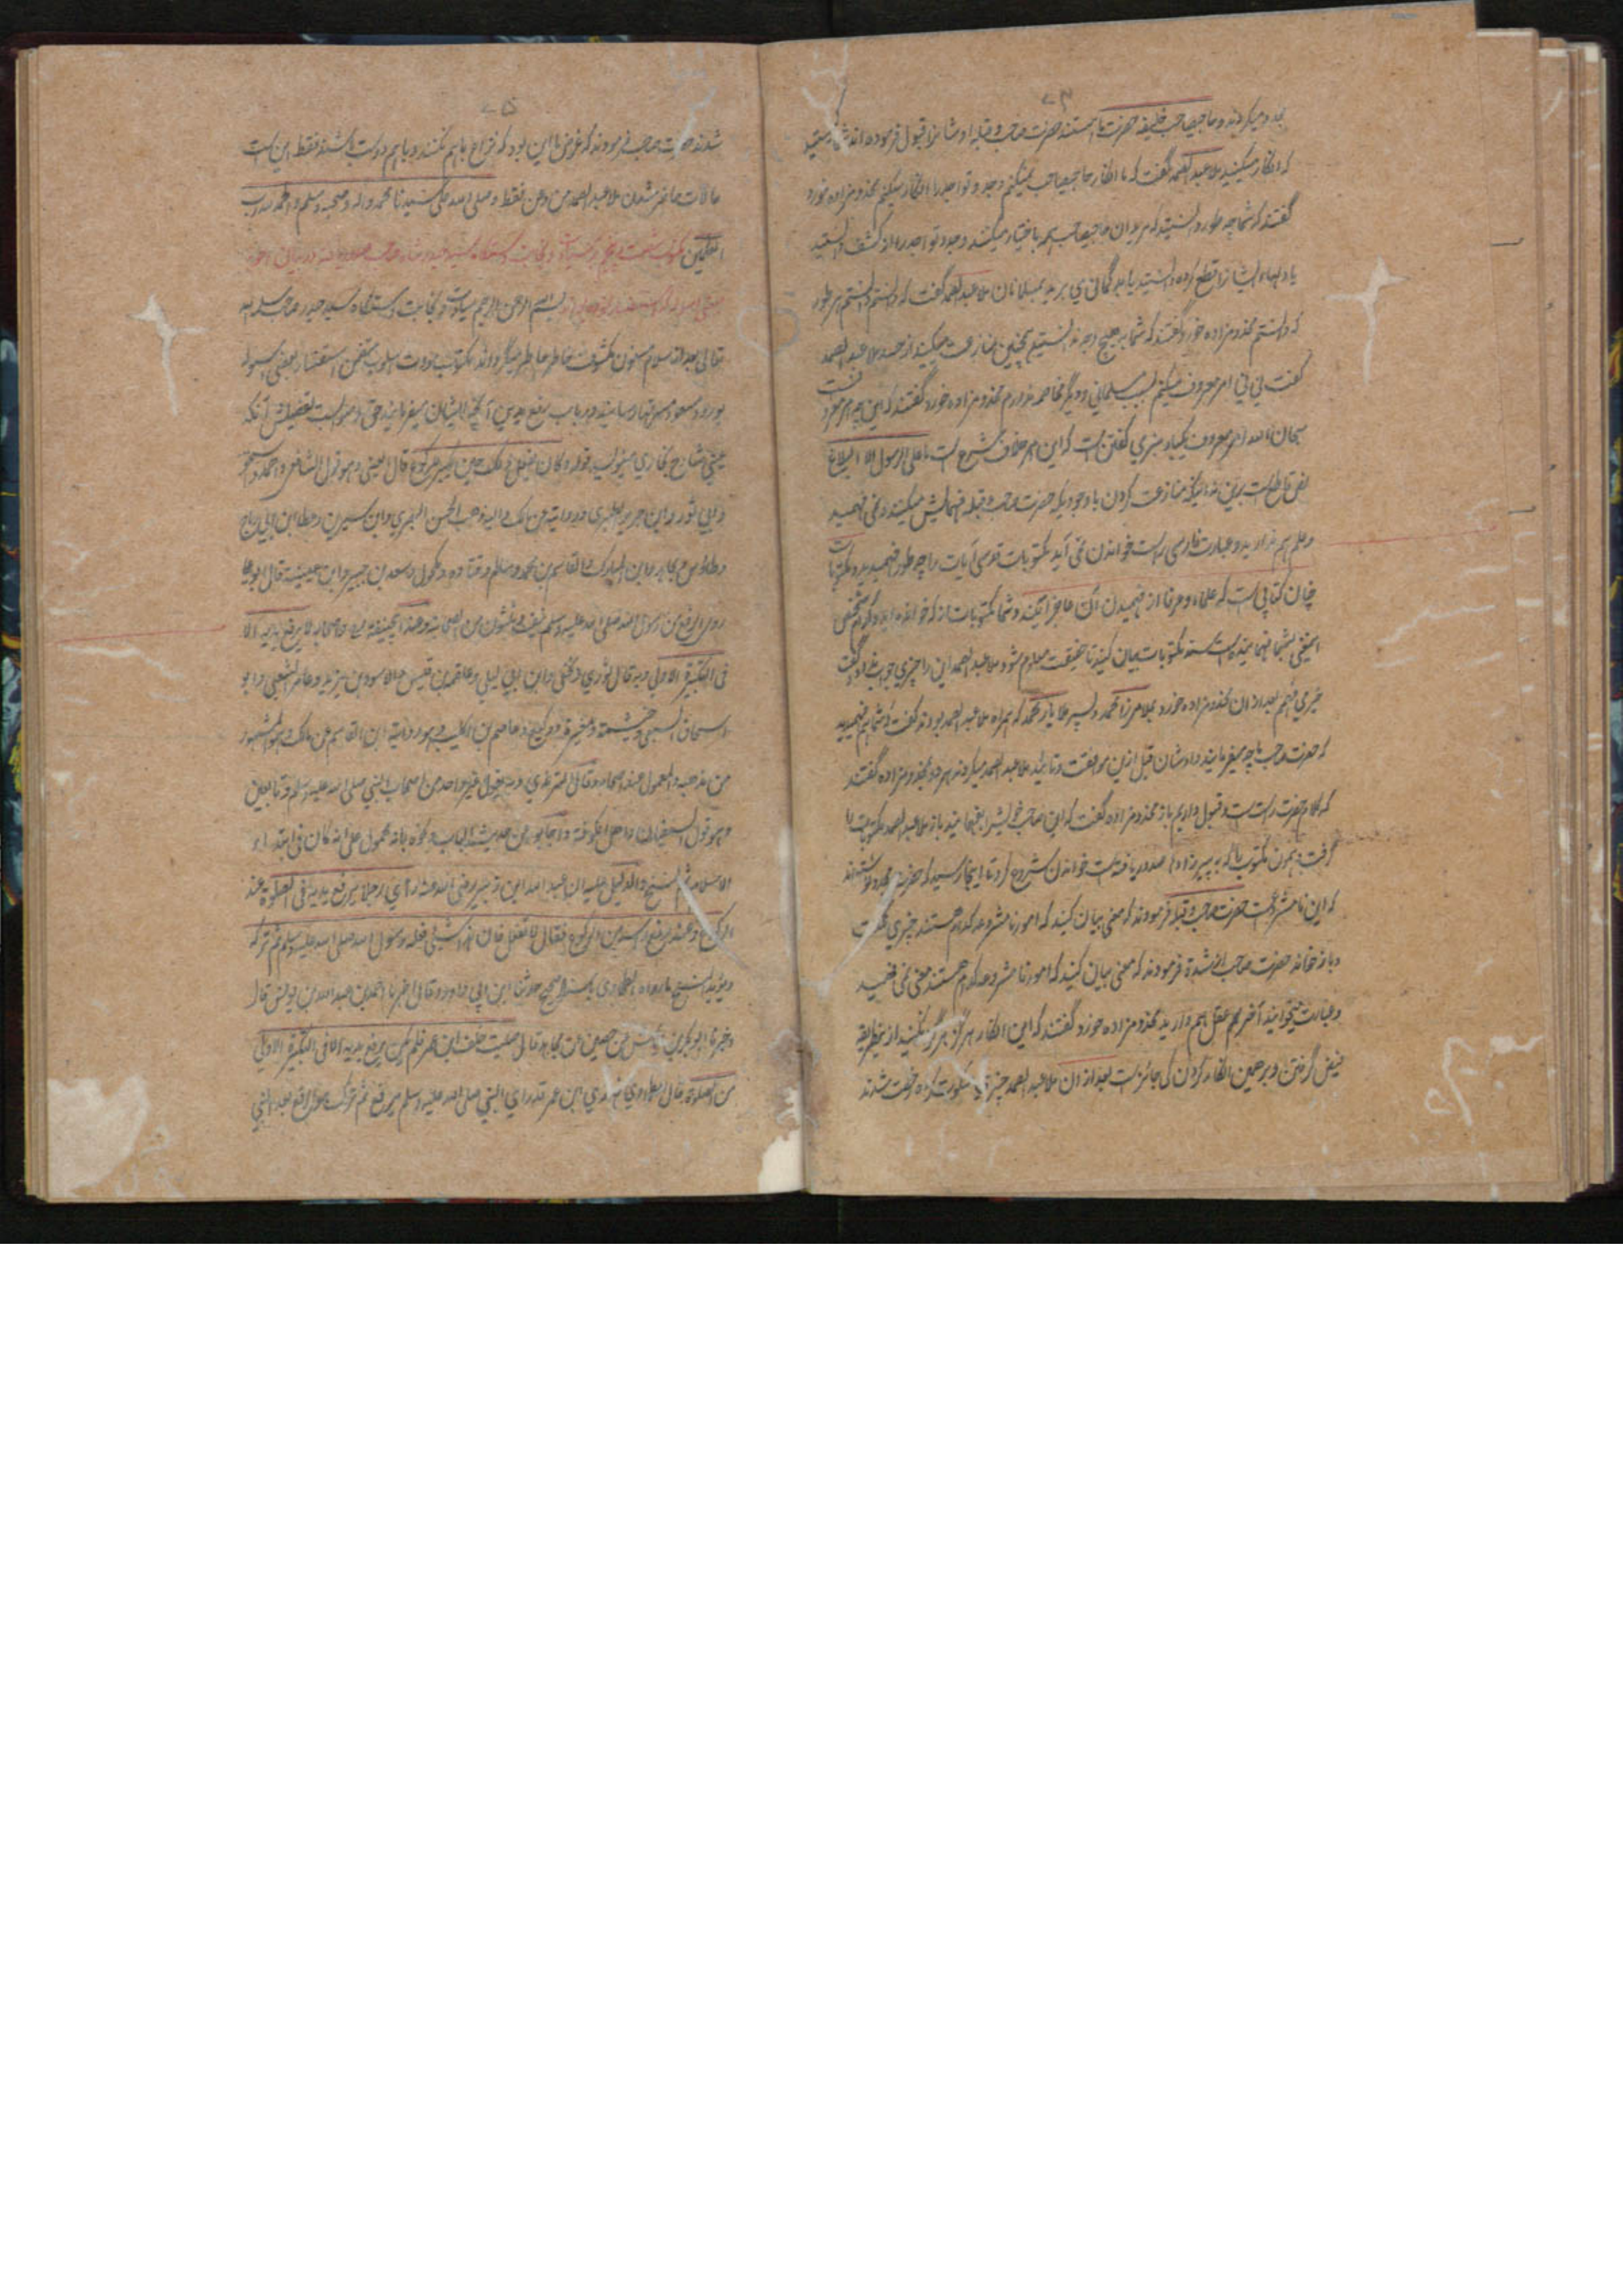 ۷۴
میکردند و حاجیصاحب خلیفه حضرت ما هستند حضرت صاحب و قبله اوشانرا قبول فرموده اند شما
که انکار میکنید ملا عبد الصمد گفت که ما انکار حاجیصاحب نمیکنم وجد و تواجد را انکار میکنم مخدومزاده خورد
گفتند که شما چه طور دانستید که مریدان حاجیصاحب همه باختیار میکنند وجد و تواجد را از کشف دانستید
یا دلهاء ایشانرا قطع کرده دانستید یا بد گمانی می برید بمسلمانان ملا عبد الصمد گفت که دانستم دانستم هر طور
که دانستم مخدومزاده خورد گفتند که شما بر هیچ وجه ندانستید همچنین منازعت میکنید از حسد ملا عبد الصمد
گفت نی نی امر معروف میکنم بسبب مسلمانی و دیگر مخاصمه ندارم مخدومزاده خورد گفتند که این چه امر معروف است
سبحان الله امر معروف یکبار چیزی گفتن است که این امر خلاف شرع است ما علی الرسول الا البلاغ
نص قاطع است برین نه اینکه منازعت کردن با وجودیکه حضرت صاحب و قبله فهمایش میکنند و نمی فهمید
و علم هم ندارید و عبارت فارسی راست خواندن نمی آید مکتوبات قدسی آیات را چه طور فهمیدید و مکتوبات
چنان کتابی است که علماء و عرفا از فهمیدن آن عاجز آیند و شما مکتوبات از که خوانده اید و کدام شخص
اینمعنی بشما فهمانیده است سند مکتوبات بیان کنید تا حقیقت معلوم شود ملا عبد الصمد این را چیزی جواب نداد و گفت
خیری فهم بعد از ان مخدومزاده خورد بملا مرزا محمد و پسر ملا یار محمد که همراه ملا عبد الصمد بودند گفت که شما هم فهمیدید
که حضرت صاحب ما چه میفرمایند و اوشان قبل ازین موافقت و تائید ملا عبد الصمد میکردند هر دو بمخدومزاده گفتند
که کلام حضرت راست است و قبول داریم باز بمخدومزاده گفت که این صاحب خود ایشرا بفهمانید باز ملا عبد الصمد مکتوبات را
گرفت و همون مکتوب را که به پیرزاده ها صدور یافته است خواندن شروع کرد تا اینجا رسید که حضرت مجدد نوشته اند
که این نامشروعست حضرت صاحب و قبله فرمودند که معنی بیان کنید که امور نامشروعه کدام هستند چیزی نگفت
و باز خواند حضرت صاحب شده فرمودند که معنی بیان کنید که امور نامشروعه کدام هستند معنی نمی فهمید
و عبارت میخوانید آخر کم عقل هم دارید مخدومزاده خورد گفتند که این انکار هرگز هرگز نکنید از یکطریقه
فیض گرفتن و بر همین انکار کردن کی جائز است بعد از ان ملا عبد الصمد چیزی سکوت کرده رخصت شدند
۷۵
شدند حضرت صاحب فرمودند که غرض ما این بود که نزاع باهم نکنند و باهم دوست باشند فقط این است
حالات حاضر شدن ملا عبد الصمد من و عن فقط و صلی الله علی سیدنا محمد و اله و صحبه و سلم و الحمد لله رب
العلمین مکتوب شصت و پنجم
بسم الله الرحمن الرحیم سیادت و نجابت دستگاه سید حیدر صاحب سلمه الله
تعالی بعد از سلام مسنون مکشوف خاطر عاطر میگرداند مکتوب مودت اسلوب متضمن استفسار بعضی اسوله
بورود مسعود مسرتها رسانید در باب رفع یدین آنچه ایشان میفرمایند حق و صوابست تفصیلش آنکه
عینی شارح بخاری مینویسد قوله و کان یفعل ذلک حین یکبر للرکوع قال العینی و هو قول الشافعی و احمد و اسحق
و ابی ثور و ابن جریر الطبری و روایة عن مالک و الیه ذهب الحسن البصری و ابن سیرین و عطا ابن ابی رباح
و طاوس و مجاهد و ابن المبارک و القاسم بن محمد و سالم و قتاده و مکحول و سعید بن جبیر و ابن عیینة قال ابو علی
روی الرفع عن رسول الله صلی الله علیه و سلم نیف و ثلثون من الصحابة و عند ابیحنیفة و اصحابه لا یرفع یدیه الا
فی التکبیرة الاولی و به قال الثوری و النخعی و ابن ابی لیلی و علقمة بن قیس و الاسود بن یزید و عامر الشعبی و ابو
اسحاق السبیعی و خیثمة و مغیرة و وکیع و عاصم بن کلیب و هو روایة ابن القاسم عن مالک و هو المشهور
من مذهبه و المعمول عند اصحابه و قال الترمذی و به یقول غیر واحد من اصحاب النبی صلی الله علیه و سلم و تابعین
و هو قول السفیان و اهل الکوفة و اجابو عن حدیث الباب و نحوه بانه محمول علی انه کان فی ابتداء
الاسلام ثم نسخ و الدلیل علیه ان عبد الله ابن زبیر رضی الله عنه رآی رجلا یرفع یدیه فی الصلوة عند
الرکوع و عند رفع راسه من الرکوع فقال لا تفعل فان هذا شیئ فعله رسول الله صلی الله علیه و سلم ثم ترکه
و یؤید النسخ ما رواه الطحاوی باسناد صحیح حدثنا ابن ابی داود و قال اخبرنا احمد بن عبد الله بن یونس قال
اخبرنا ابو بکر بن عیاش عن حصین عن مجاهد قال صلیت خلف ابن عمر فلم یکن یرفع یدیه الا فی التکبیرة الاولی
من الصلوة قال الطحاوی فهذا ابن عمر قد رای النبی صلی الله علیه و سلم یرفع ثم ترک هو الرفع بعد النبی